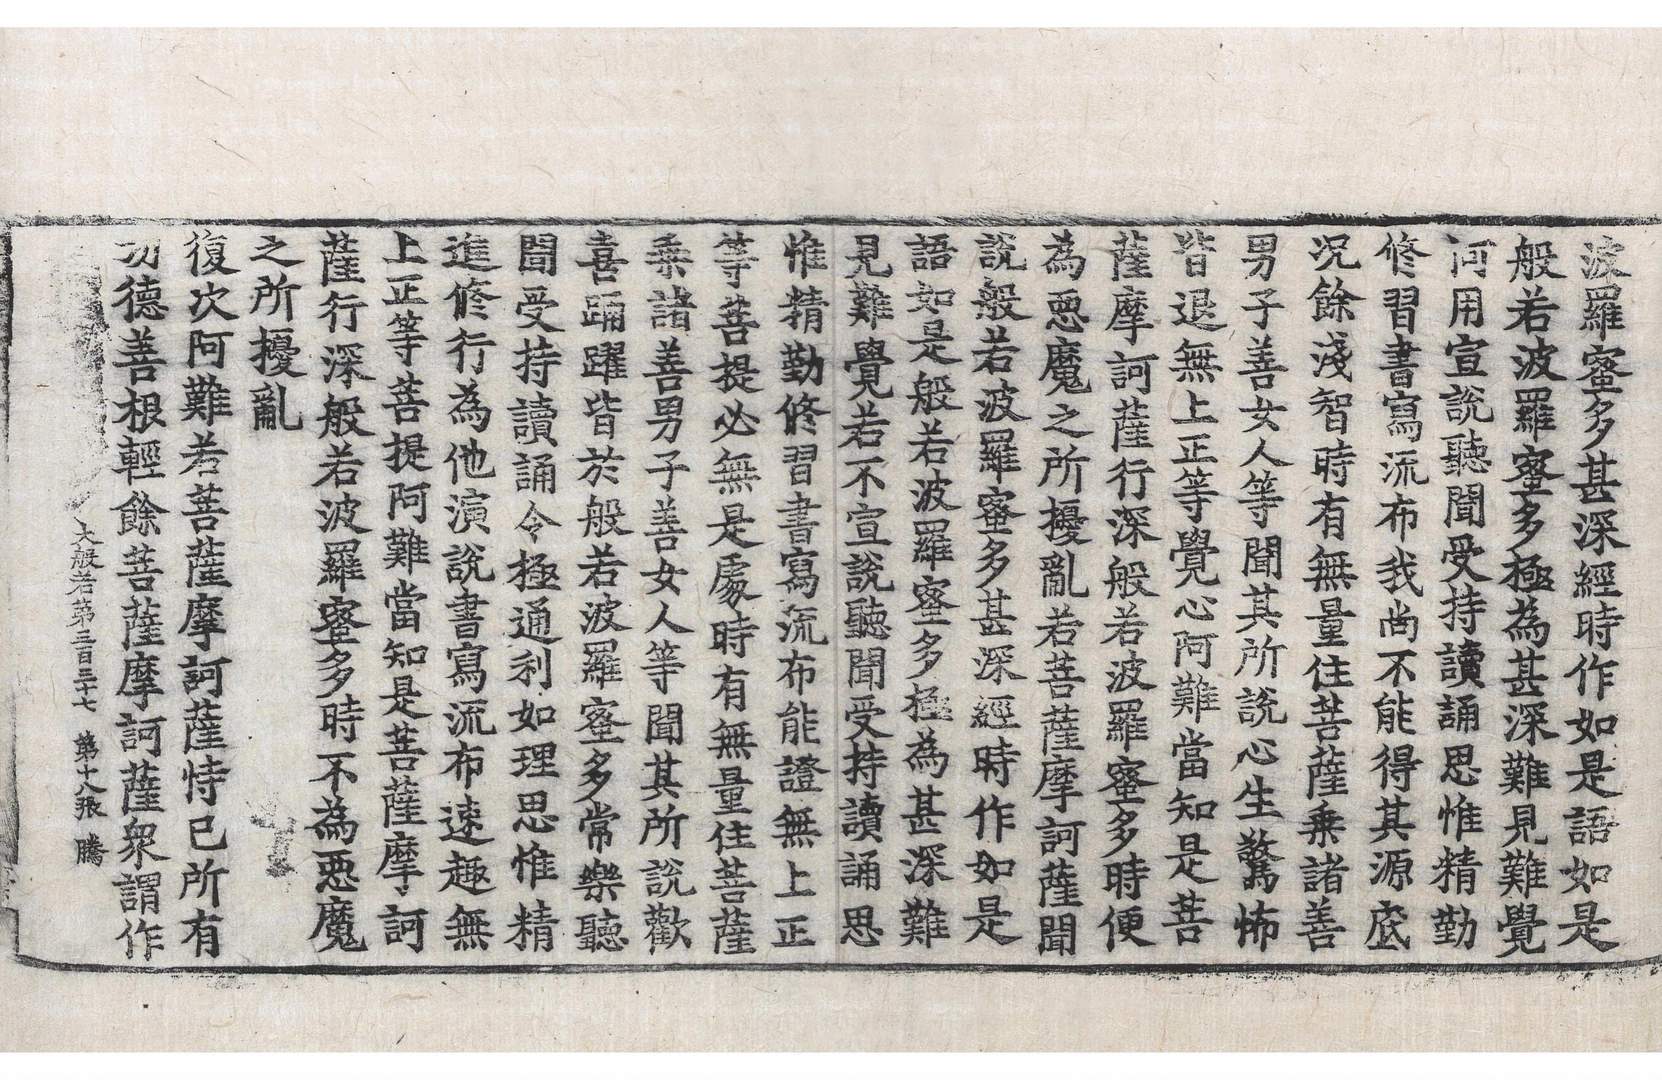 波羅蜜多甚深經時作如是語如是
般若波羅蜜多極為甚深難見難覺
何用宣說聽聞受持讀誦思惟精勤
修習書寫流布我尚不能得其源底
況餘淺智時有無量住菩薩乘諸善
男子善女人等聞其所說心生驚怖
皆退無上正等覺心阿難當知是菩
薩摩訶薩行深般若波羅蜜多時便
為惡魔之所擾亂若菩薩摩訶薩聞
說般若波羅蜜多甚深經時作如是
語如是般若波羅蜜多極為甚深難
見難覺若不宣說聽聞受持讀誦思
惟精勤修習書寫流布能證無上正
等菩提必無是處時有無量住菩薩
乘諸善男子善女人等聞其所說歡
喜踊躍皆於般若波羅蜜多常樂聽
聞受持讀誦令極通利如理思惟精
進修行為他演說書寫流布速趣無
上正等菩提阿難當知是菩薩摩訶
薩行深般若波羅蜜多時不為惡魔
之所擾亂
復次阿難若菩薩摩訶薩恃已所有
功德善根輕餘菩薩摩訶薩衆謂作
大般若第三百三十七 第十八張 騰